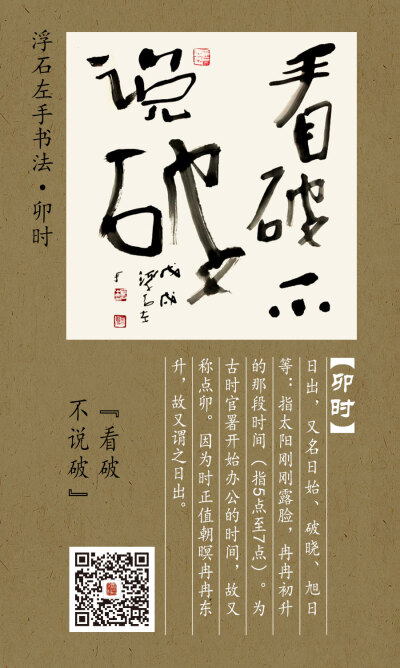 浮石左手书法·卯时
看破不
说破
戊戌
浮石左
手
【卯时】
日出，又名日始、破晓、旭日
等：指太阳刚刚露脸，冉冉初升
的那段时间（指5点至7点）。为
古时官署开始办公的时间，故又
称点卯。因为时正值朝暝冉冉东
升，故又谓之日出。
『看破
不说破』